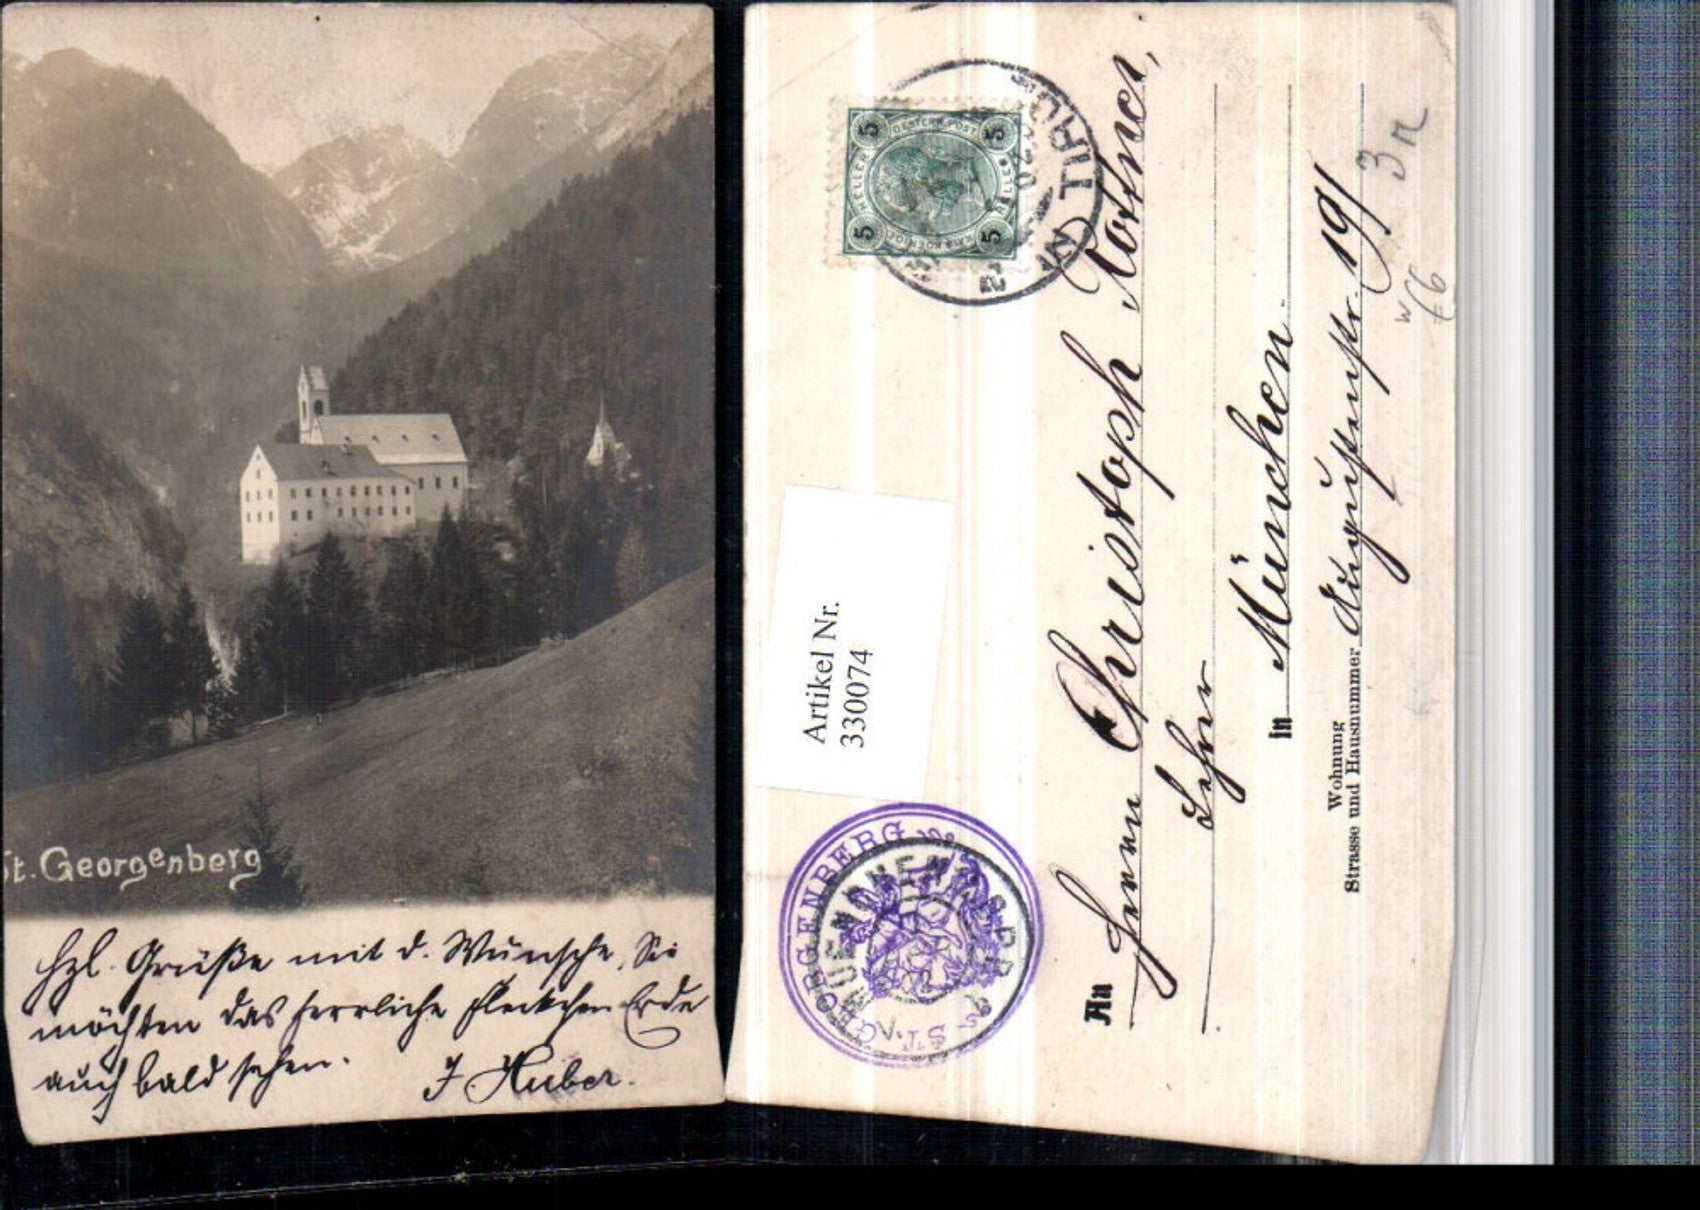 St. Georgenberg
Hzl. Grüße mit d. Wunsche, Sie
möchten das herrliche Fleckchen Erde
auch bald sehen.
J Huber.
5 5
5 5
OESTERR. POST
HELLER HELLER
Artikel Nr.
330074
ST. GEORGENBERG
MUENCHEN
An
Herrn Christoph
Lehrer
in München.
Wohnung
Strasse und Hausnummer Augustenstr. 19/
3 r